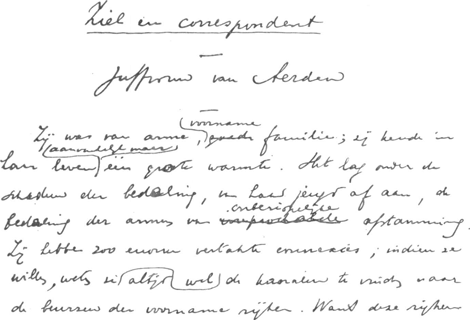 Ziel en correspondent
—
Juffrouw van Aerden
—
voorname
Zij was van arme, goede familie; zij kende in
(aanvankelijk maar)
haar leven één grote warmte. Het lag onder de
schaduw der bedeling, van haar jeugd af aan, de
onberispelijke
bedeling der armen van afstamming.
Zij hebbe zoo enorm vertakte connecties; indien ze
willen, weten zij altijd wel de kanalen te vinden naar
de beurzen der voorname rijken. Want deze rijken